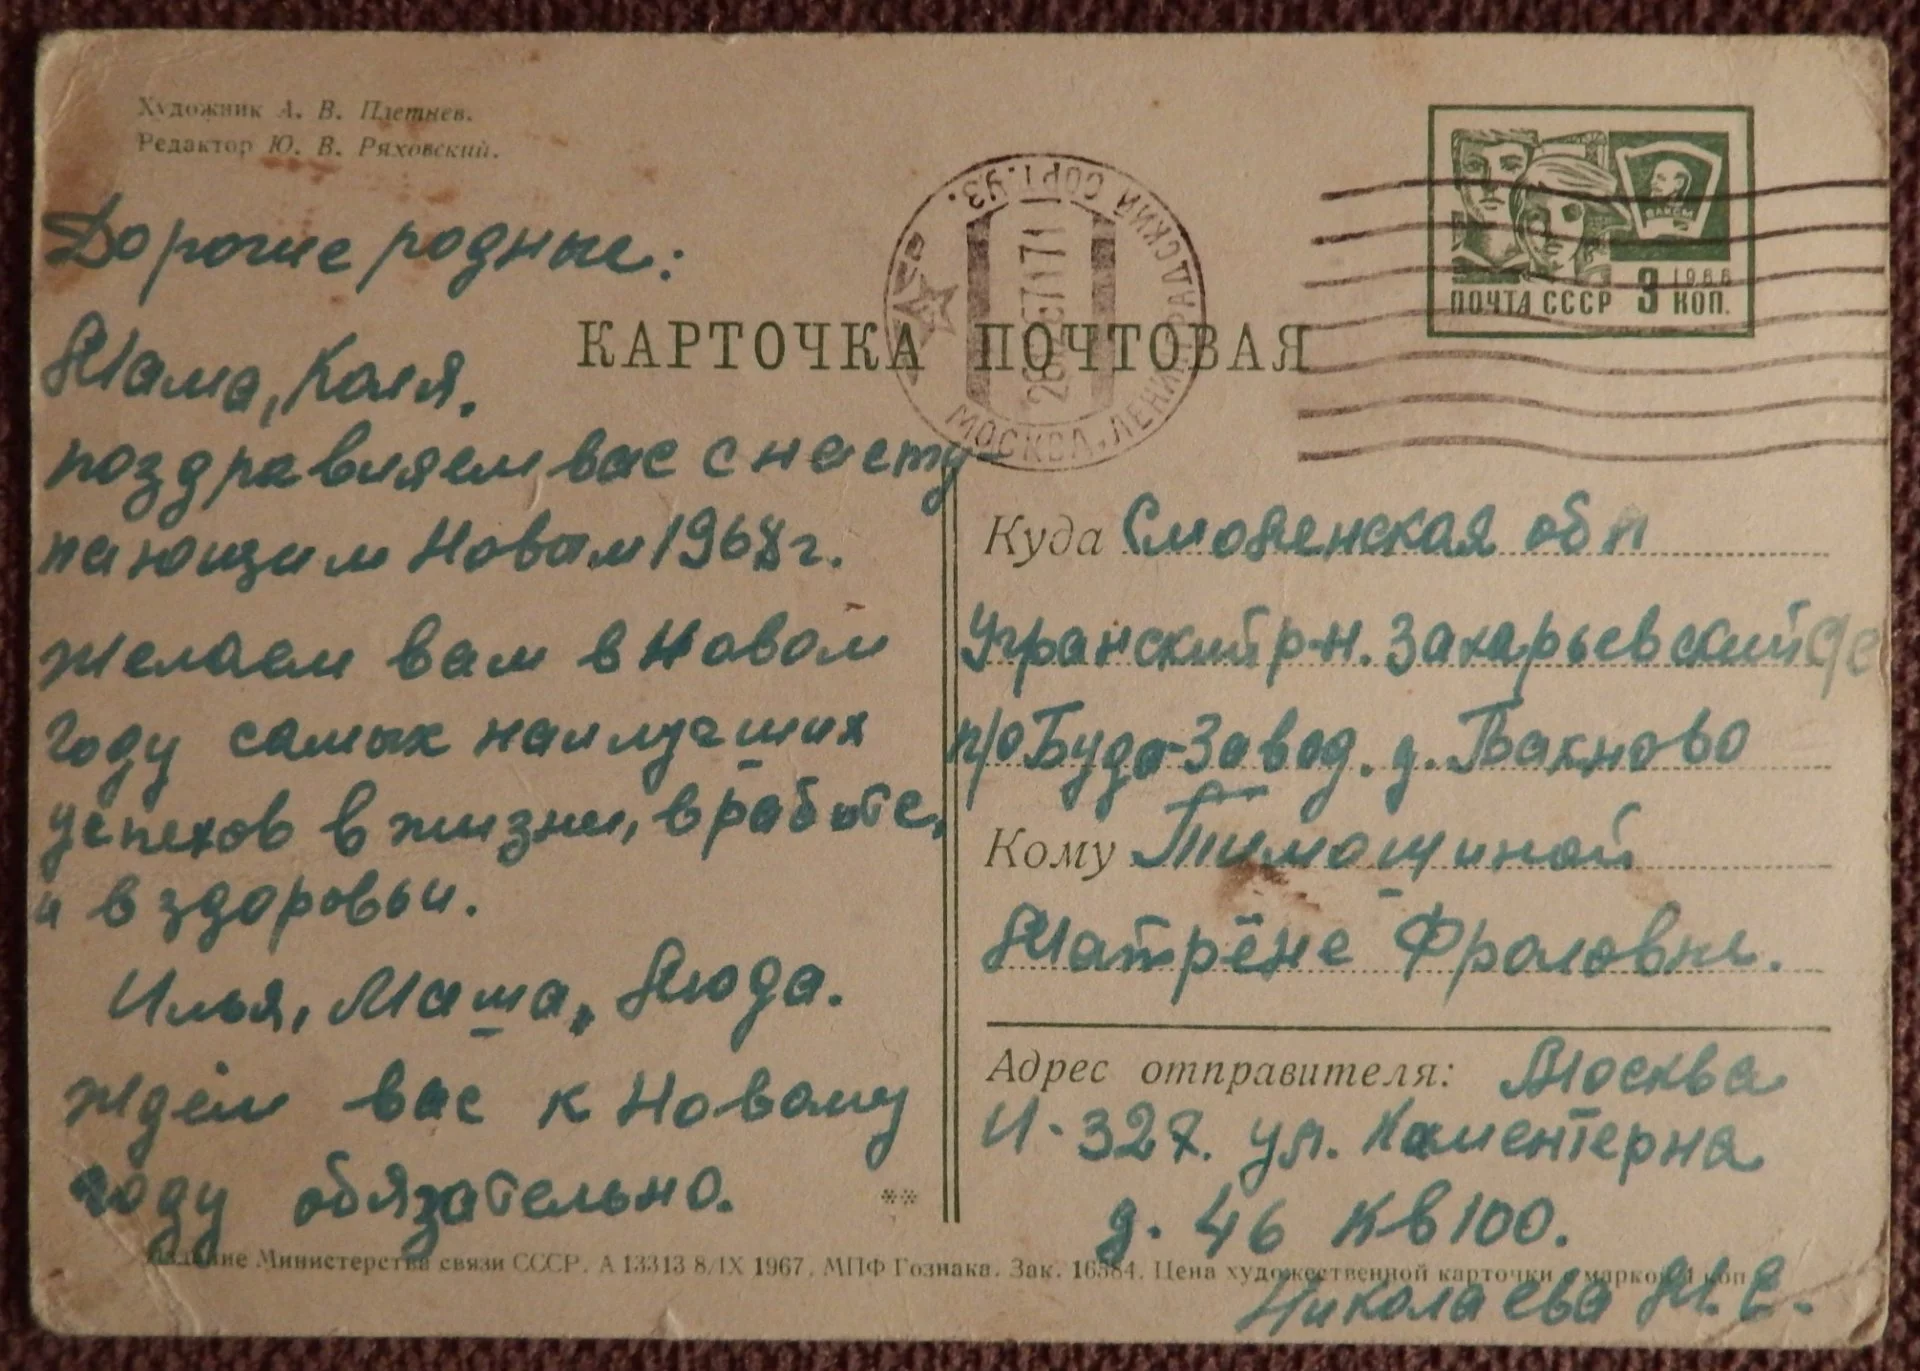 Художник А. В. Плетнев.
Редактор Ю. В. Ряховский.
Дорогие родные:
Мама, Коля.
поздравляем вас с насту-
пающим Новым 1968 г.
желаем вам в Новом
году самых наилучших
успехов в жизни, в работе,
и в здоровьи.
Илья, Маша, Люда.
ждём вас к Новому
году обязательно.
**
КАРТОЧКА ПОЧТОВАЯ
МОСКВА. ЛЕНИНГРАДСКИЙ СОРТ. УЗ.
ВЛКСМ
1966
ПОЧТА СССР 3 КОП.
Куда Смоленская обл
Угранский р-н. Захарьевский с/с
п/о Буда-Завод. д.
Кому Тимошиной
Матрёне Фроловне.
Адрес отправителя: Москва
И-327. ул. Коминтерна
д. 46 кв 100.
Николаева М. Е.
Издание Министерства связи СССР. А 13313 8/IX 1967. МПФ Гознака. Зак. 16584. Цена художественной карточки с маркой коп